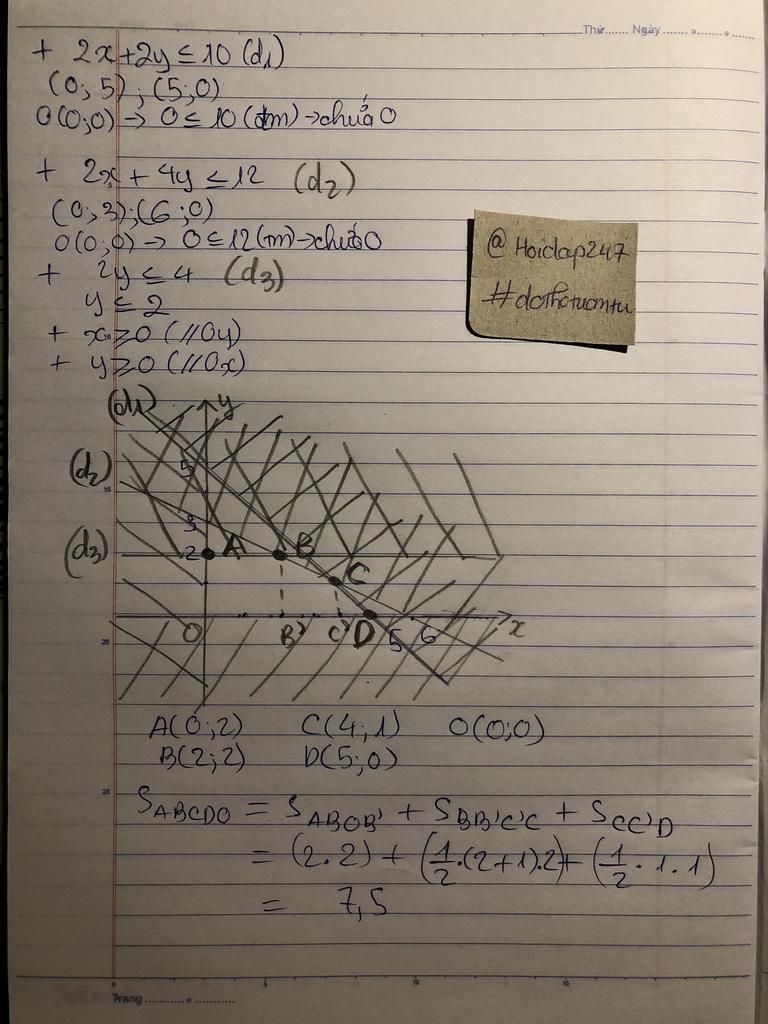 Thứ....... Ngày ....... . ....... .
+ 2x + 2y ≤ 10 (d1)
(0; 5) ; (5; 0)
O(0;0) → 0 ≤ 10 (tm) → chứa O
+ 2x + 4y ≤ 12 (d2)
(0; 3) ; (6; 0)
O(0; 0) → 0 ≤ 12 (tm) → chứa O
+ 2y ≤ 4 (d3)
y ≤ 2
+ x ≥ 0 (//Oy)
+ y ≥ 0 (//Ox)
@Hoidap247
#dothotuomtu
(d1) y
(d2) 5
3
(d3) 2 A B
C
O B' C' D 5 6 x
A(0;2) C(4;1) O(0;0)
B(2;2) D(5;0)
S ABCDO = S ABOB' + S BB'C'C + S CC'D
= (2.2) + (1/2.(2+1).2) + (1/2.1.1)
= 7,5
Trang .......... . ..........